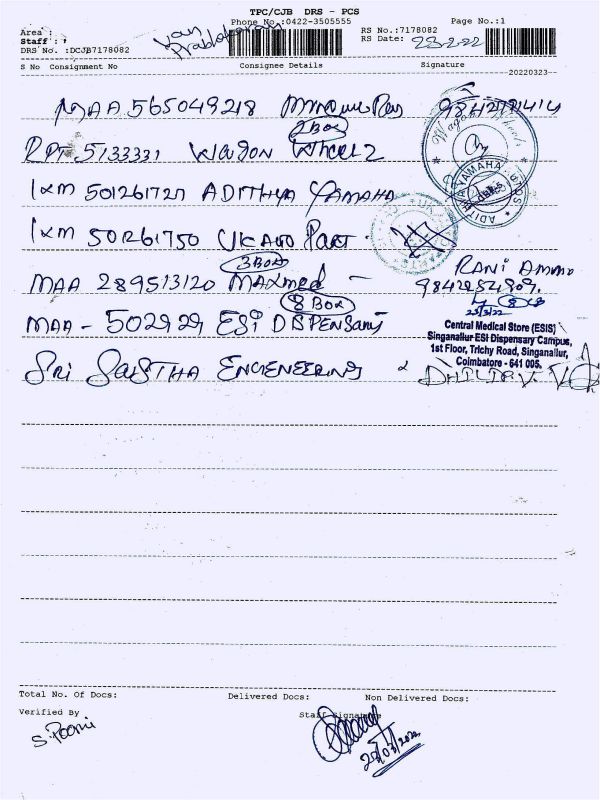 TPC/CJB DRS - PCS
Phone No.:0422-3505555 Page No.:1
Area :
Staff :
DRS No. :DCJB7178082
Van
Prabhakaran
RS No.:7178082
RS Date: 23-3-22
S No Consignment No Consignee Details Signature
20220323
MAA 565049218 9842771414
2 Box
RPT 5133331 Wagon Wheelz
Wagon Wheelz
1xm 501261727 ADITHYA YAMAHA
ADITHYA YAMAHA
1xm 501261750 UK Auto Part
3 Box
MAA 289513120 Maxmed - RANI AMMU
9842254909.
8 Box
23/3/22
MAA - 502929 ESI DISPENSARY
Central Medical Store (ESIS)
Singanallur ESI Dispensary Campus,
1st Floor, Trichy Road, Singanallur,
Coimbatore - 641 005.
Sri SaiSTHA ENGINEERING DHILIP.V.
Total No. Of Docs: Delivered Docs: Non Delivered Docs:
Verified By Staff Signature
S. Poorni
23/03/2022